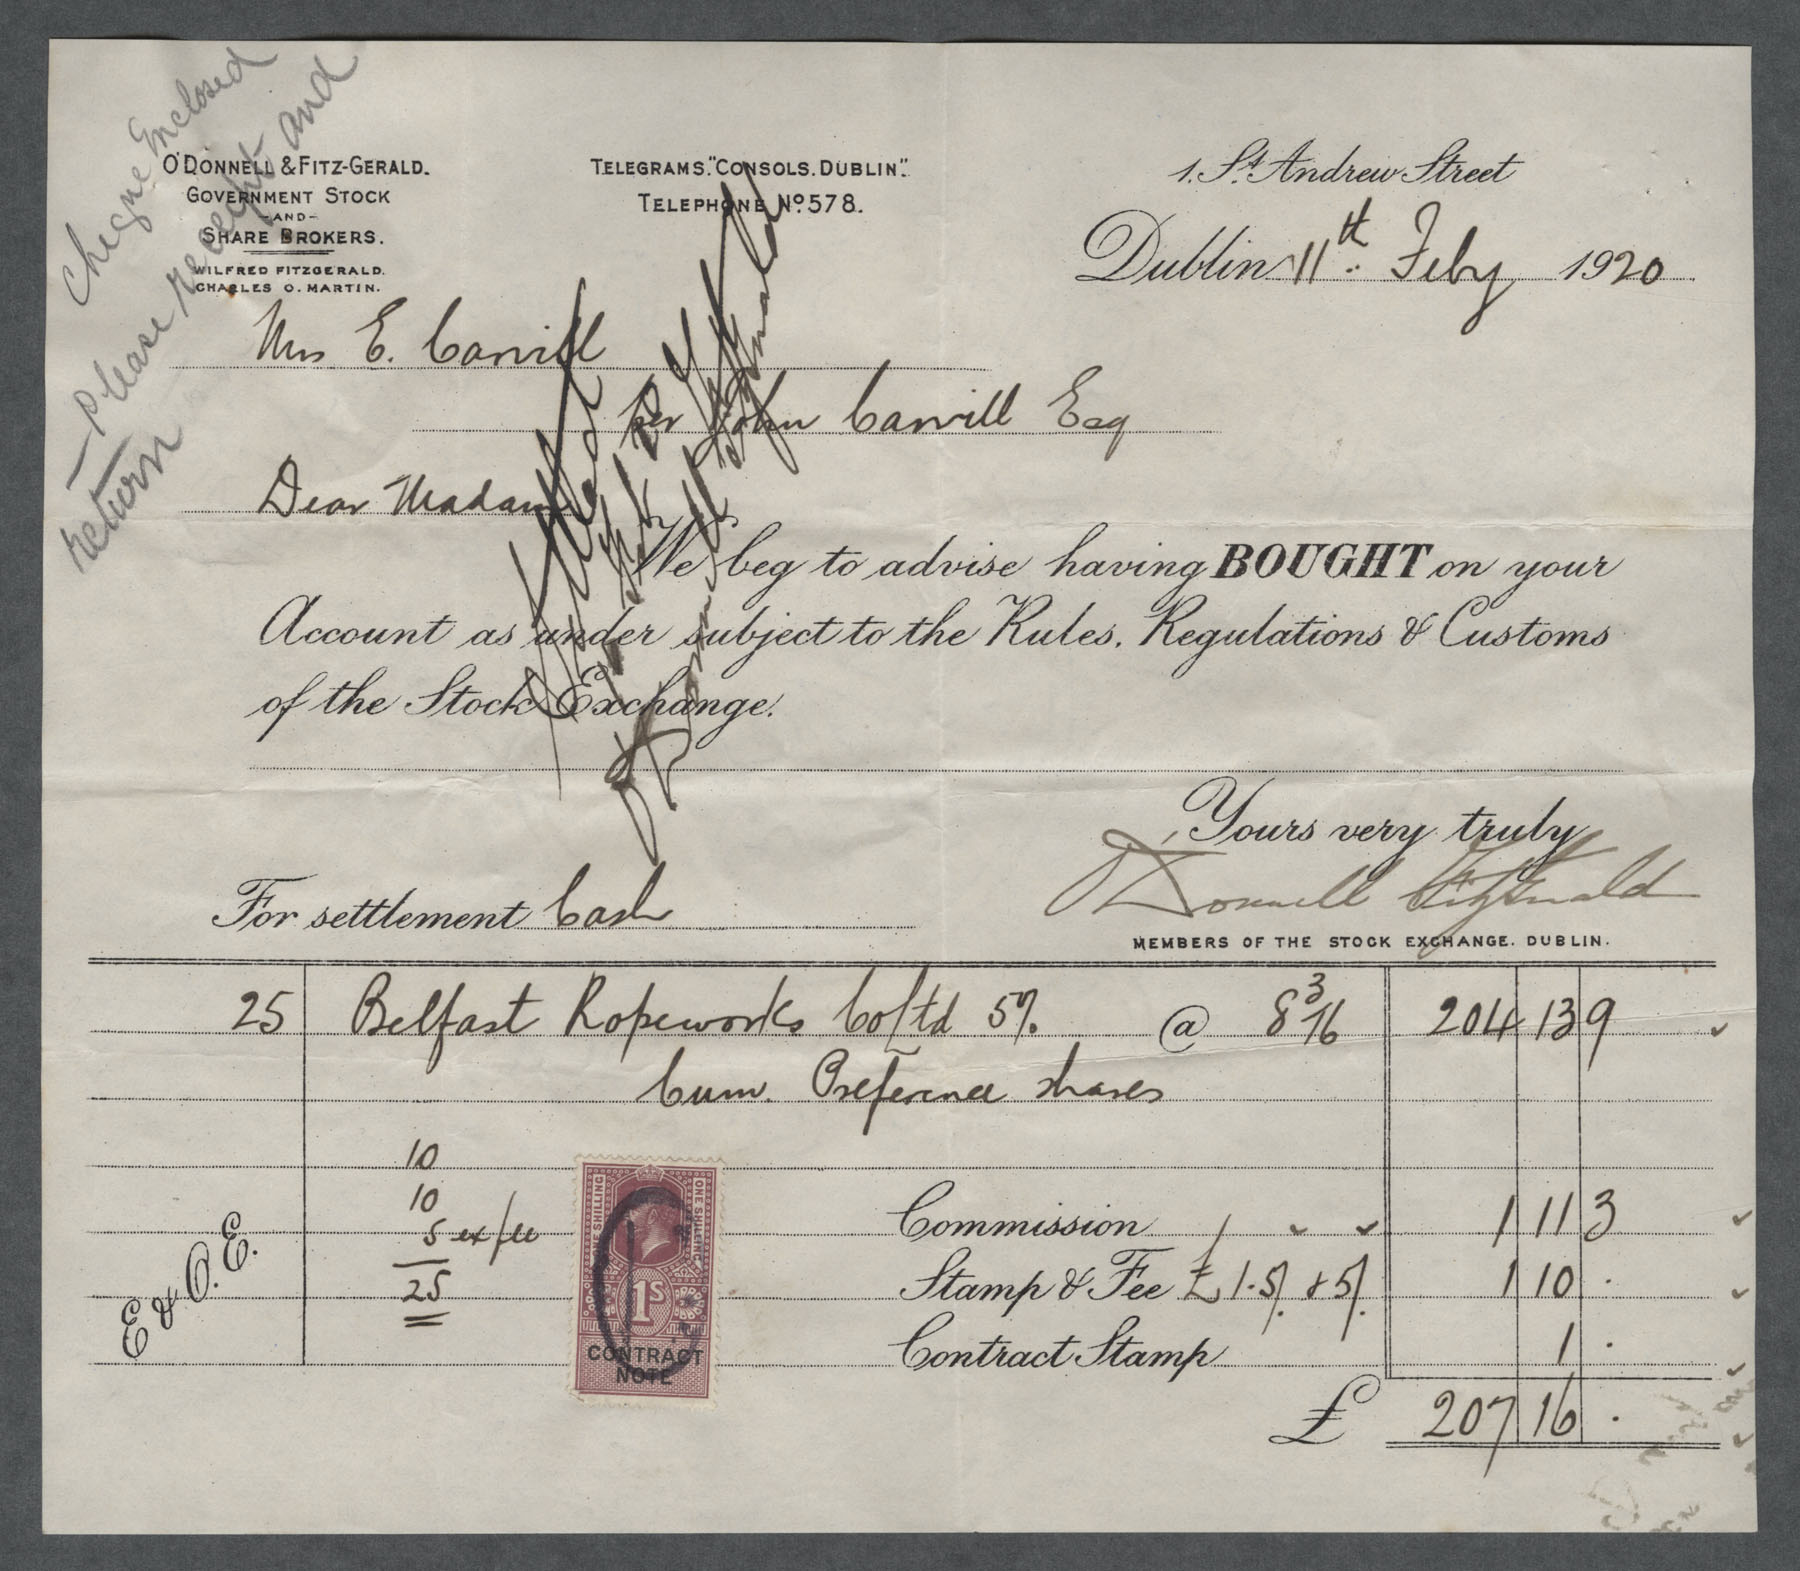 Cheque Enclosed
— please receipt and
return
O'DONNELL & FITZ-GERALD.
GOVERNMENT STOCK
-AND-
SHARE BROKERS.
WILFRED FITZGERALD.
CHARLES O. MARTIN.
TELEGRAMS. "CONSOLS. DUBLIN".
TELEPHONE No. 578.
1. St. Andrew Street
Dublin 11th Feby 1920
Mrs E. Carvill
per John Carvill Esq
Dear Madam
We beg to advise having BOUGHT on your
Account as under subject to the Rules, Regulations & Customs
of the Stock Exchange.
Yours very truly
O'Donnell Fitzgerald
For settlement Cash
MEMBERS OF THE STOCK EXCHANGE. DUBLIN.
25 Belfast Ropeworks Co Ltd 5% @ 8 3/16 204 13 9
Cum. Preference shares
10
10
5 ex fee
25
E & O. E.
ONE SHILLING
ONE SHILLING
1S
CONTRACT
NOTE
Commission 1 11 3
Stamp & Fee £1.5/. & 5/. 1 10 .
Contract Stamp 1 .
£ 207 16 .